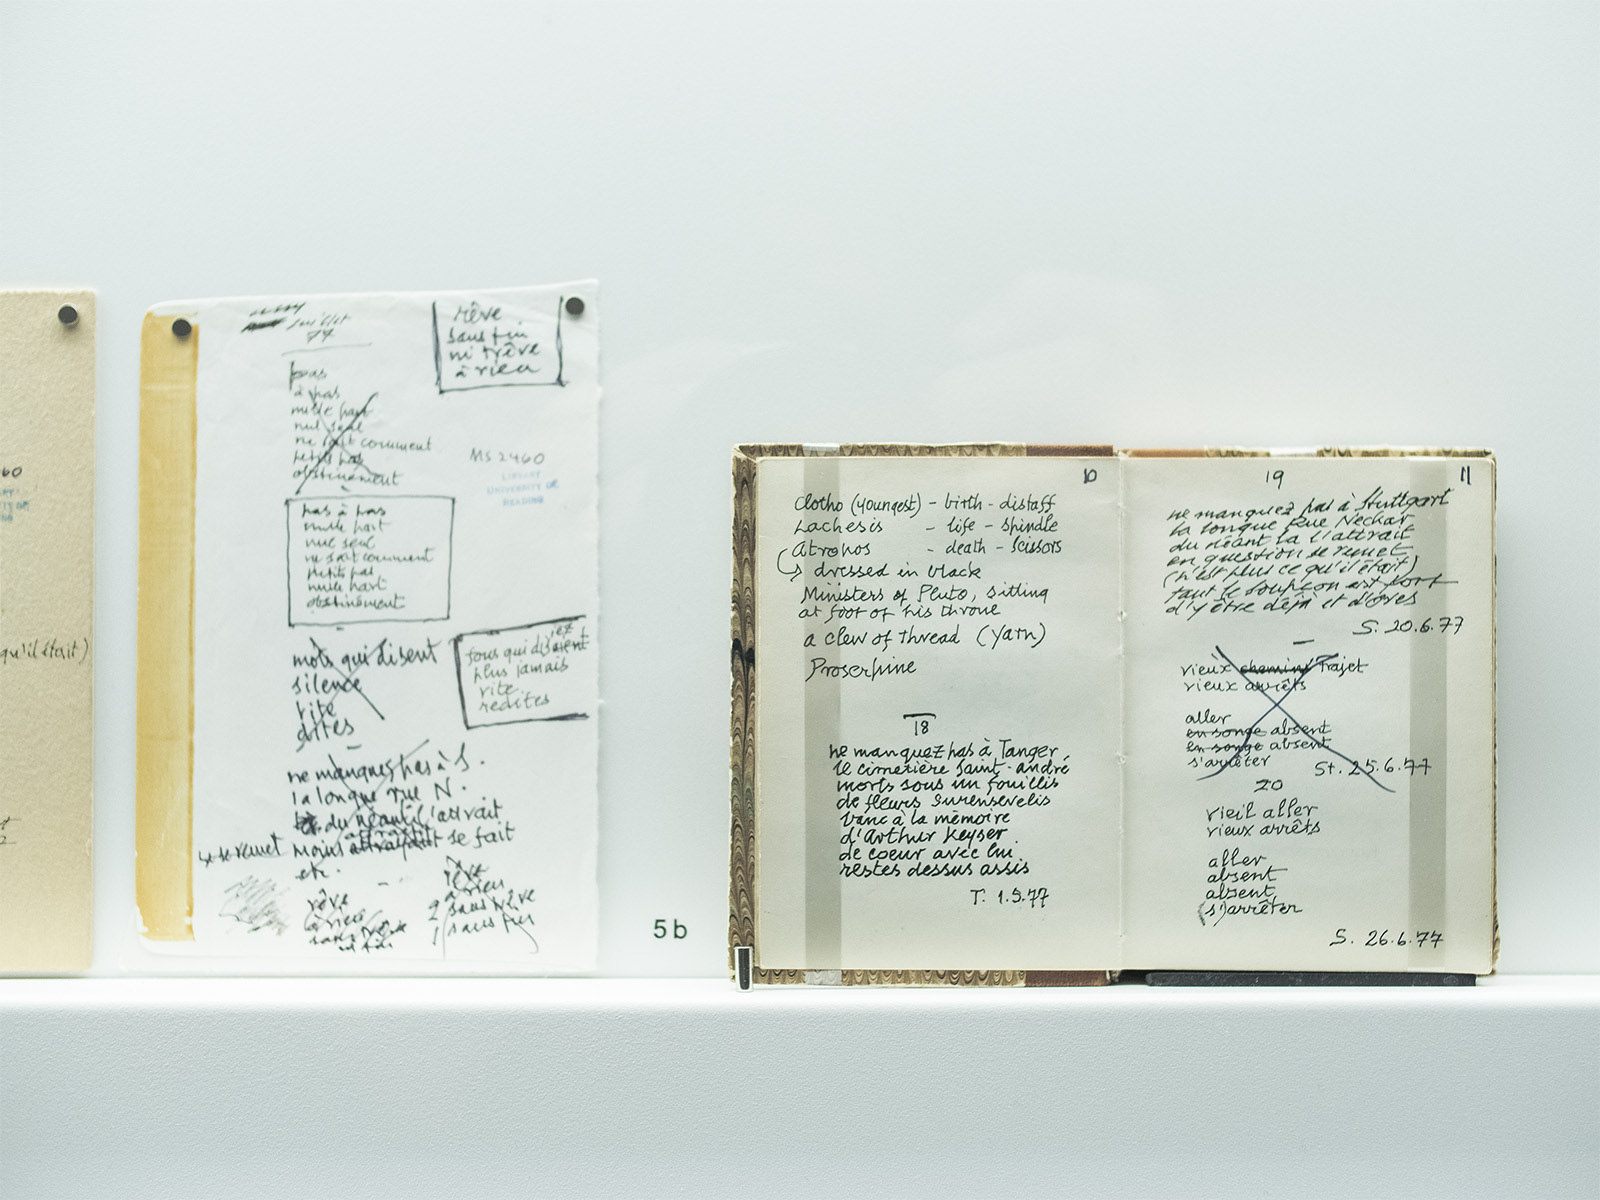 60
qu'il était)
2
Juillet
77
rêve
sans fin
ni trêve
à rien
pas
à pas
nulle part
nul seul
ne sait comment
petits pas
obstinément
MS 2460
LIBRARY
UNIVERSITY OF
READING
pas à pas
nulle part
nul seul
ne sait comment
petits pas
nulle part
obstinément
mots qui disent
silence
vite
dites
fous qui disaient
iez
plus jamais
vite
redites
ne manquez pas à S.
la longue rue N.
du néant l'attrait
se remet
moins se fait
etc.
rêve
à rien
sans trêve
ni fin
rêve
à rien
2 sans trêve
1 sans fin
5b
10
Clotho (youngest) - birth - distaff
Lachesis - life - spindle
Atropos - death - scissors
dressed in black
Ministers of Pluto, sitting
at foot of his throne
a clew of thread (yarn)
Proserpine
18
ne manquez pas à Tanger
le cimetière Saint-André
morts sous un fouillis
de fleurs surensevelis
banc à la mémoire
d'Arthur Keyser
de coeur avec lui
restes dessus assis
T. 1.5.77
19
11
ne manquez pas à Stuttgart
la longue Rue Neckar
du néant là l'attrait
en question se remet
(n'est plus ce qu'il était)
tant le soupçon est fort
d'y être déjà et d'ores
S. 20.6.77
vieux chemins trajet
vieux arrêts
aller
en songe absent
en songe absent
s'arrêter
St. 25.6.77
20
vieil aller
vieux arrêts
aller
absent
absent
(s')arrêter
S. 26.6.77